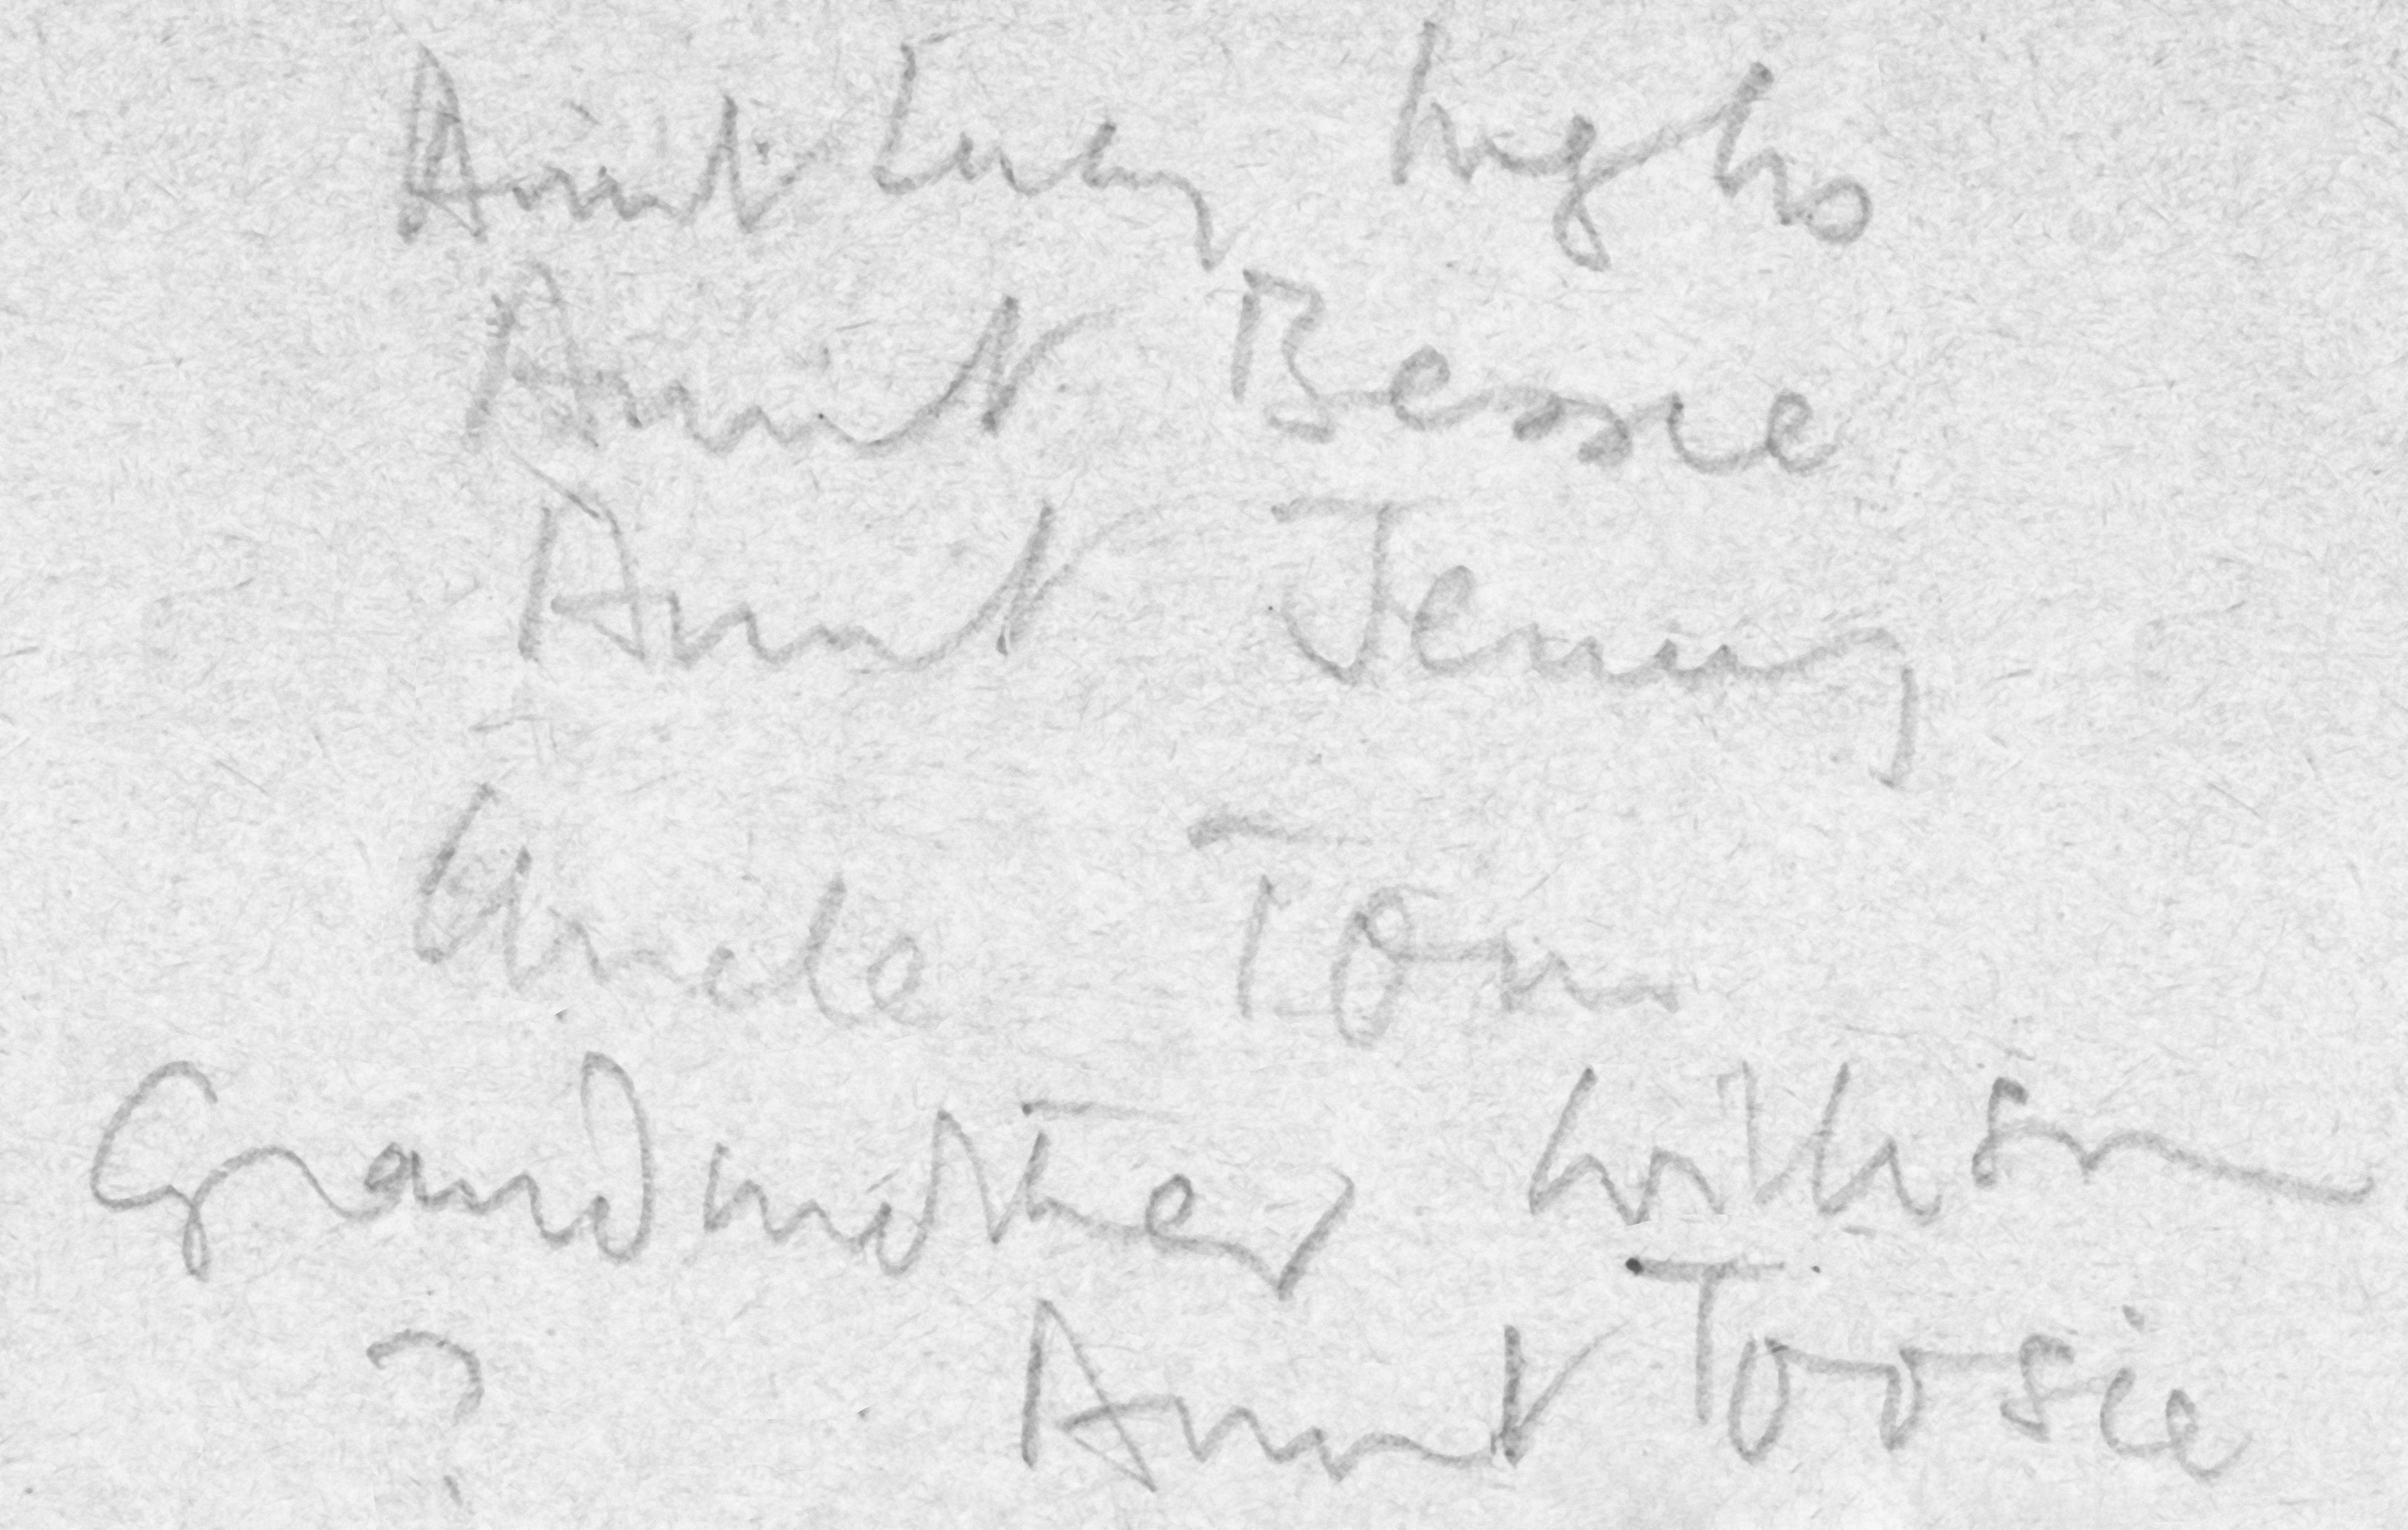 Aunt Lucy
Aunt Bessie
Aunt Jenny
Uncle Tom
Grandmother Willison
? Aunt Toosie